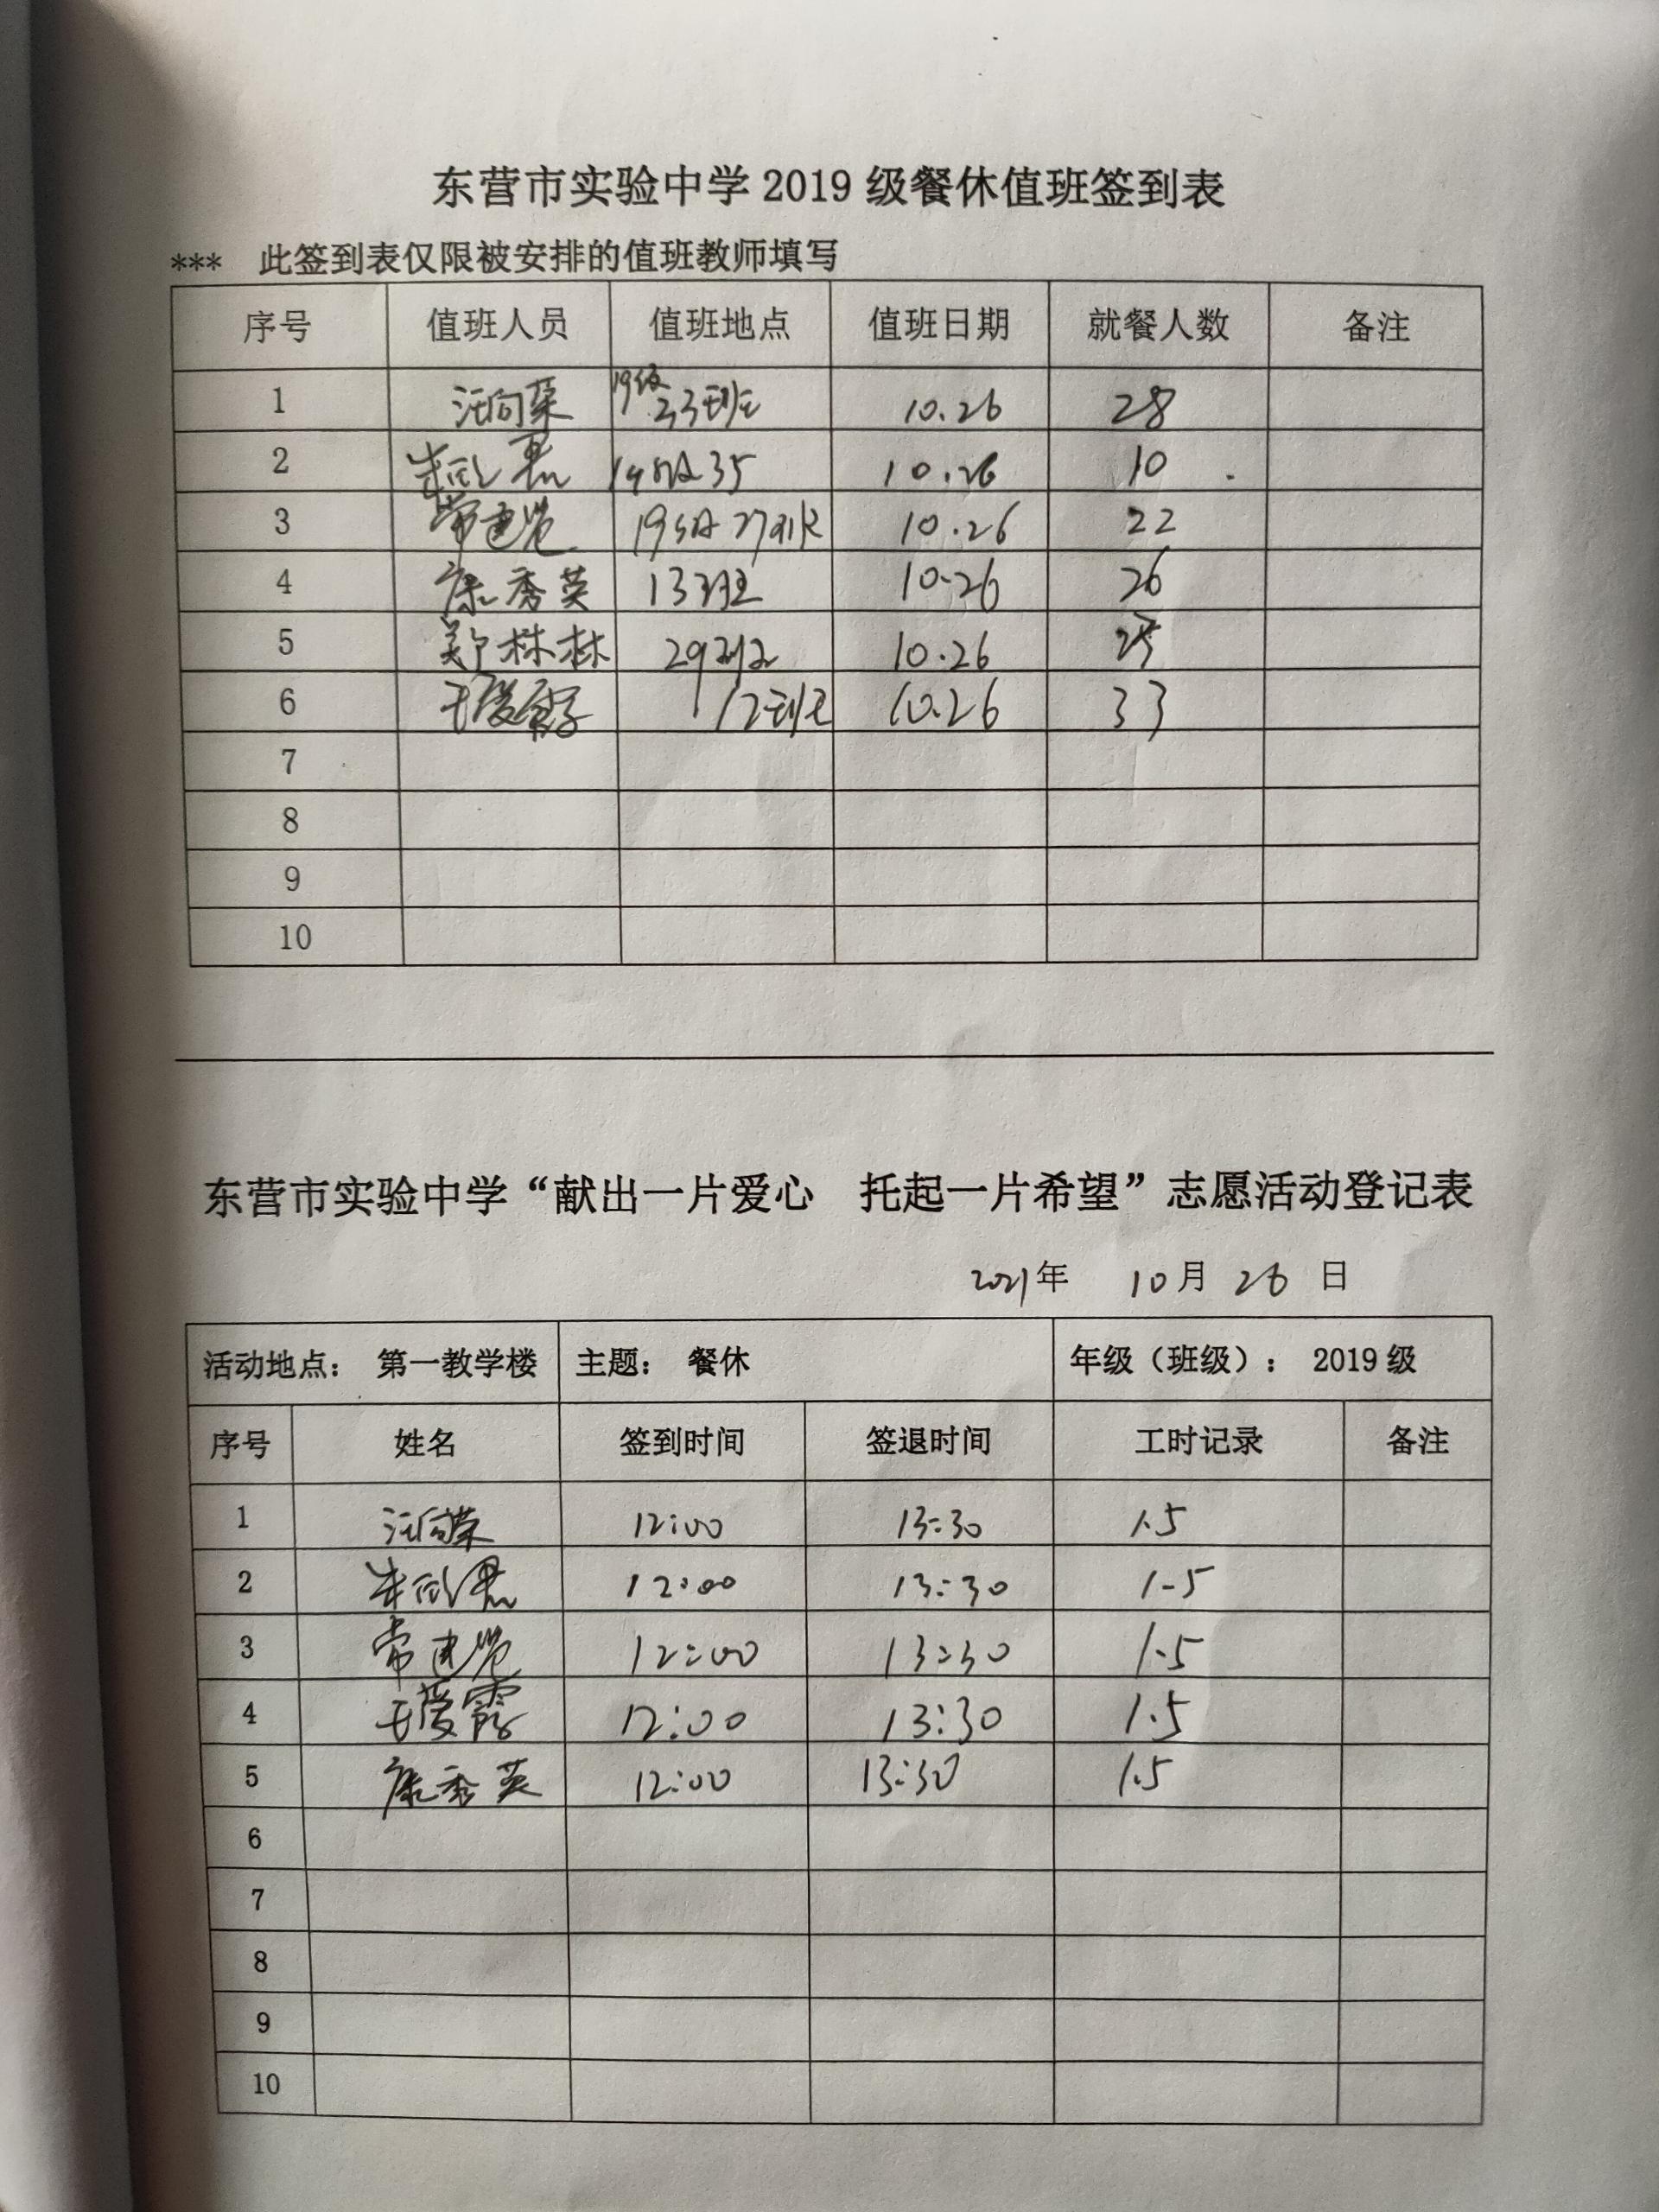 东营市实验中学 2019 级餐休值班签到表
*** 此签到表仅限被安排的值班教师填写
序号 值班人员 值班地点 值班日期 就餐人数 备注
1 汪向荣 19级23班 10.26 28
2 19级35 10.26 10
3 19级27班 10.26 22
4 康秀英 13班 10.26 26
5 郑林林 29班 10.26
6 于爱霞 12班 10.26 33
7
8
9
10
东营市实验中学“献出一片爱心 托起一片希望”志愿活动登记表
2021年 10月 26 日
活动地点： 第一教学楼 主题： 餐休 年级（班级）： 2019 级
序号 姓名 签到时间 签退时间 工时记录 备注
1 汪向荣 12:00 13:30 1.5
2 12:00 13:30 1.5
3 12:00 13:30 1.5
4 于爱霞 12:00 13:30 1.5
5 康秀英 12:00 13:30 1.5
6
7
8
9
10